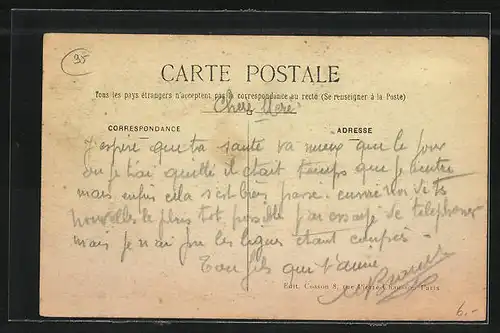 95
CARTE POSTALE
Tous les pays étrangers n'acceptent pas la correspondance au recto (Se renseigner à la Poste)
Chere Mere
CORRESPONDANCE
ADRESSE
J'espère que ta santé va mieux que le jour
ou je t'ai quitté il était temps que je rentre
mais enfin cela s'est bien passé. envoie moi de tes
nouvelles le plus tot possible j'ai essayé de telephoner
mais je n'ai pu les lignes etant coupés -
Ton fils qui t'aime
Edit. Cosson 8, rue Pierre Paris
6.-